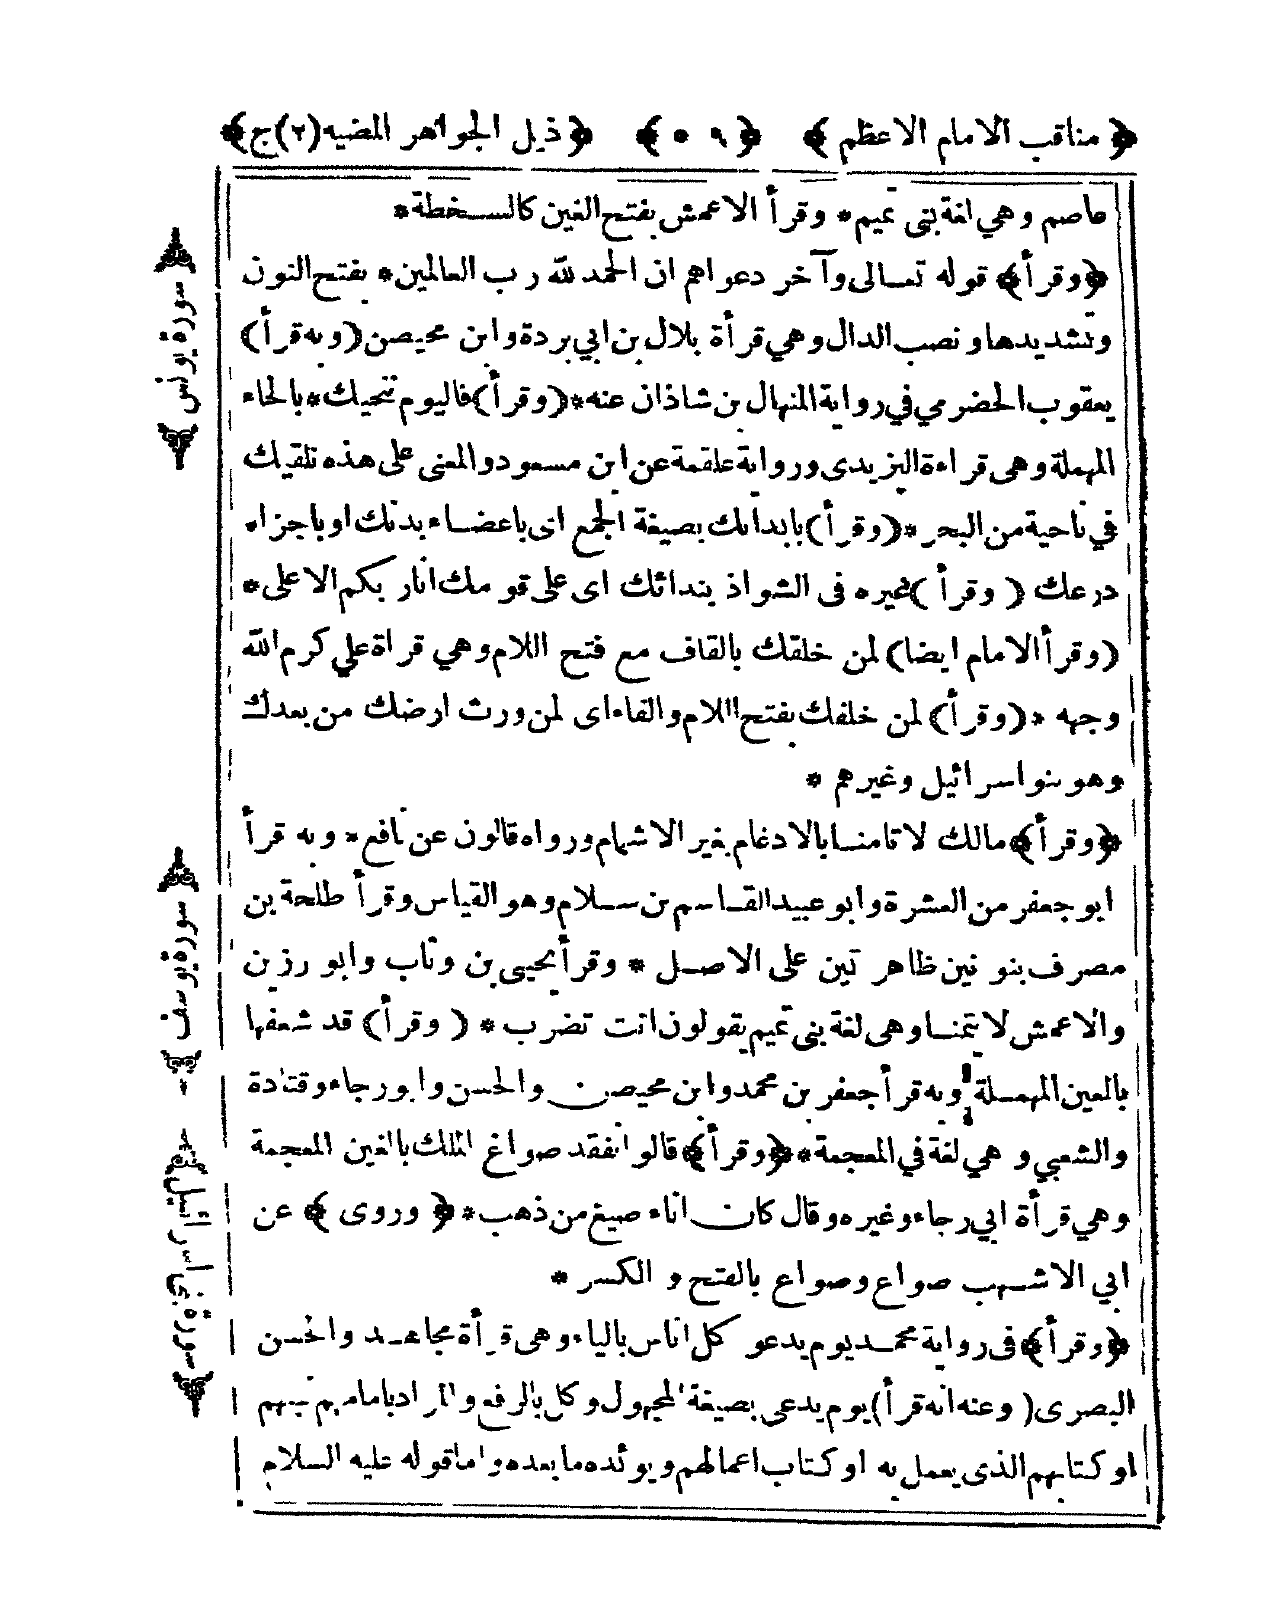 ﴿ مناقب الامام الاعظم ﴾ ﴿ ٥٠٩ ﴾ ﴿ ذيل الجواهر المضيه (٢) ج ﴾
عاصم وهي لغة بنى تميم * وقرأ الاعمش بفتح الغين كالسخطة *
﴿ وقرأ ﴾ قوله تعالى وآخر دعواهم ان الحمد لله رب العالمين * بفتح النون
وتشديدها ونصب الدال وهي قرأة بلال بن ابي بردة وابن محيصن (وبه قرأ)
يعقوب الحضرمي في رواية المنهال بن شاذان عنه * (وقرأ) فاليوم ننحيك * بالحاء
المهملة وهى قراءة اليزيدى ورواية علقمة عن ابن مسعود والمعنى على هذه نلقيك
في ناحية من البحر * (وقرأ) بابدانك بصيغة الجمع اى باعضاء بدنك او باجزاء
درعك (وقرأ) غيره فى الشواذ بندائك اى على قومك انا ربكم الاعلى *
(وقرأ الامام ايضا) لمن خلقك بالقاف مع فتح اللام وهي قراة علي كرم الله
وجهه * (وقرأ) لمن خلفك بفتح اللام والفاء اى لمن ورث ارضك من بعدك
وهو بنو اسرائيل وغيرهم *
﴿ وقرأ ﴾ مالك لا تامنا بالادغام بغير الاشمام ورواه قالون عن نافع * وبه قرأ
ابو جعفر من العشرة وابو عبيد القاسم بن سلام وهو القياس وقرأ طلحة بن
مصرف بنونين ظاهرتين على الاصل * وقرأ يحيى بن وثاب وابو رزين
والاعمش لا تيمنا وهى لغة بنى تميم يقولون انت تضرب * (وقرأ) قد شعفها
بالعين المهملة وبه قرأ جعفر بن محمد وابن محيصن والحسن وابو رجاء وقتادة
والشعبي وهي لغة في المعجمة * ﴿ وقرأ ﴾ قالوا نفقد صواغ الملك بالغين المعجمة
وهي قرأة ابي رجاء وغيره وقال كان اناء صيغ من ذهب * ﴿ وروى ﴾ عن
ابي الاشهب صواع وصواع بالفتح و الكسر *
﴿ وقرأ ﴾ فى رواية محمد يوم يدعو كل اناس بالياء وهى قرأة مجاهد والحسن
البصرى (وعنه انه قرأ) يوم يدعى بصيغة المجهول وكل بالرفع والمراد بامامهم نبيهم
او كتابهم الذى يعمل به او كتاب اعمالهم ويوئده ما بعده واما قوله عليه السلام
﴿ سورة يونس ﴾
﴿ سورة يوسف ﴾
﴿ سورة بنى اسرائيل ﴾